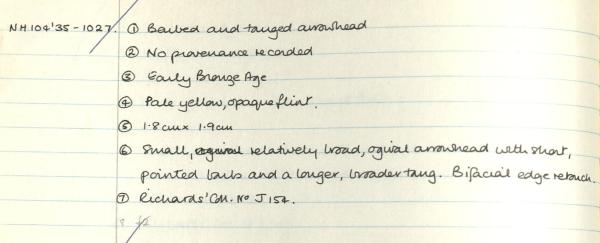 NH.104'35-1027. ① Barbed and tanged arrowhead
② No provenance recorded
③ Early Bronze Age
④ Pale yellow, opaque flint.
⑤ 1.8cm x 1.9cm
⑥ Small, relatively broad, ogival arrowhead with short,
pointed barbs and a longer, broader tang. Bifacial edge retouch.
⑦ Richards' Coll. No J154.
8